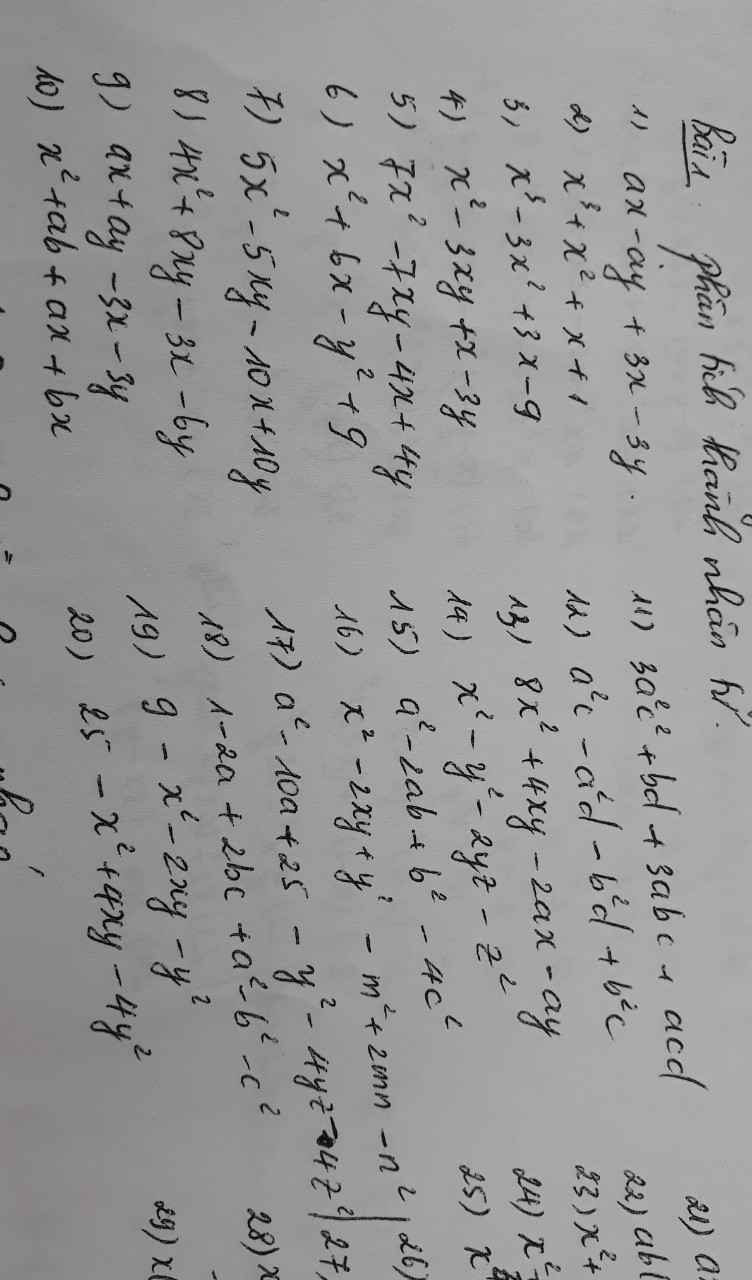 bài 1: phân tích thành nhân tử.
1) ax - ay + 3x - 3y.
2) x³ + x² + x + 1
3) x³ - 3x² + 3x - 9
4) x² - 3xy + x - 3y
5) 7x² - 7xy - 4x + 4y
6) x² + 6x - y² + 9
7) 5x² - 5xy - 10x + 10y
8) 4x² + 8xy - 3x - 6y
9) ax + ay - 3x - 3y
10) x² + ab + ax + bx
11) 3a²c² + bd + 3abc + acd
12) a²c - a²d - b²d + b²c
13) 8x² + 4xy - 2ax - ay
14) x² - y² - 2yz - z²
15) a² - 2ab + b² - 4c²
16) x² - 2xy + y² - m² + 2mn - n²
17) a² - 10a + 25 - y² - 4yz - 4z²
18) 1 - 2a + 2bc + a² - b² - c²
19) 9 - x² - 2xy - y²
20) 25 - x² + 4xy - 4y²
21) a
22) ab(
23) x² +
24) x² -
25) x
26)
27)
28) x
29) x(